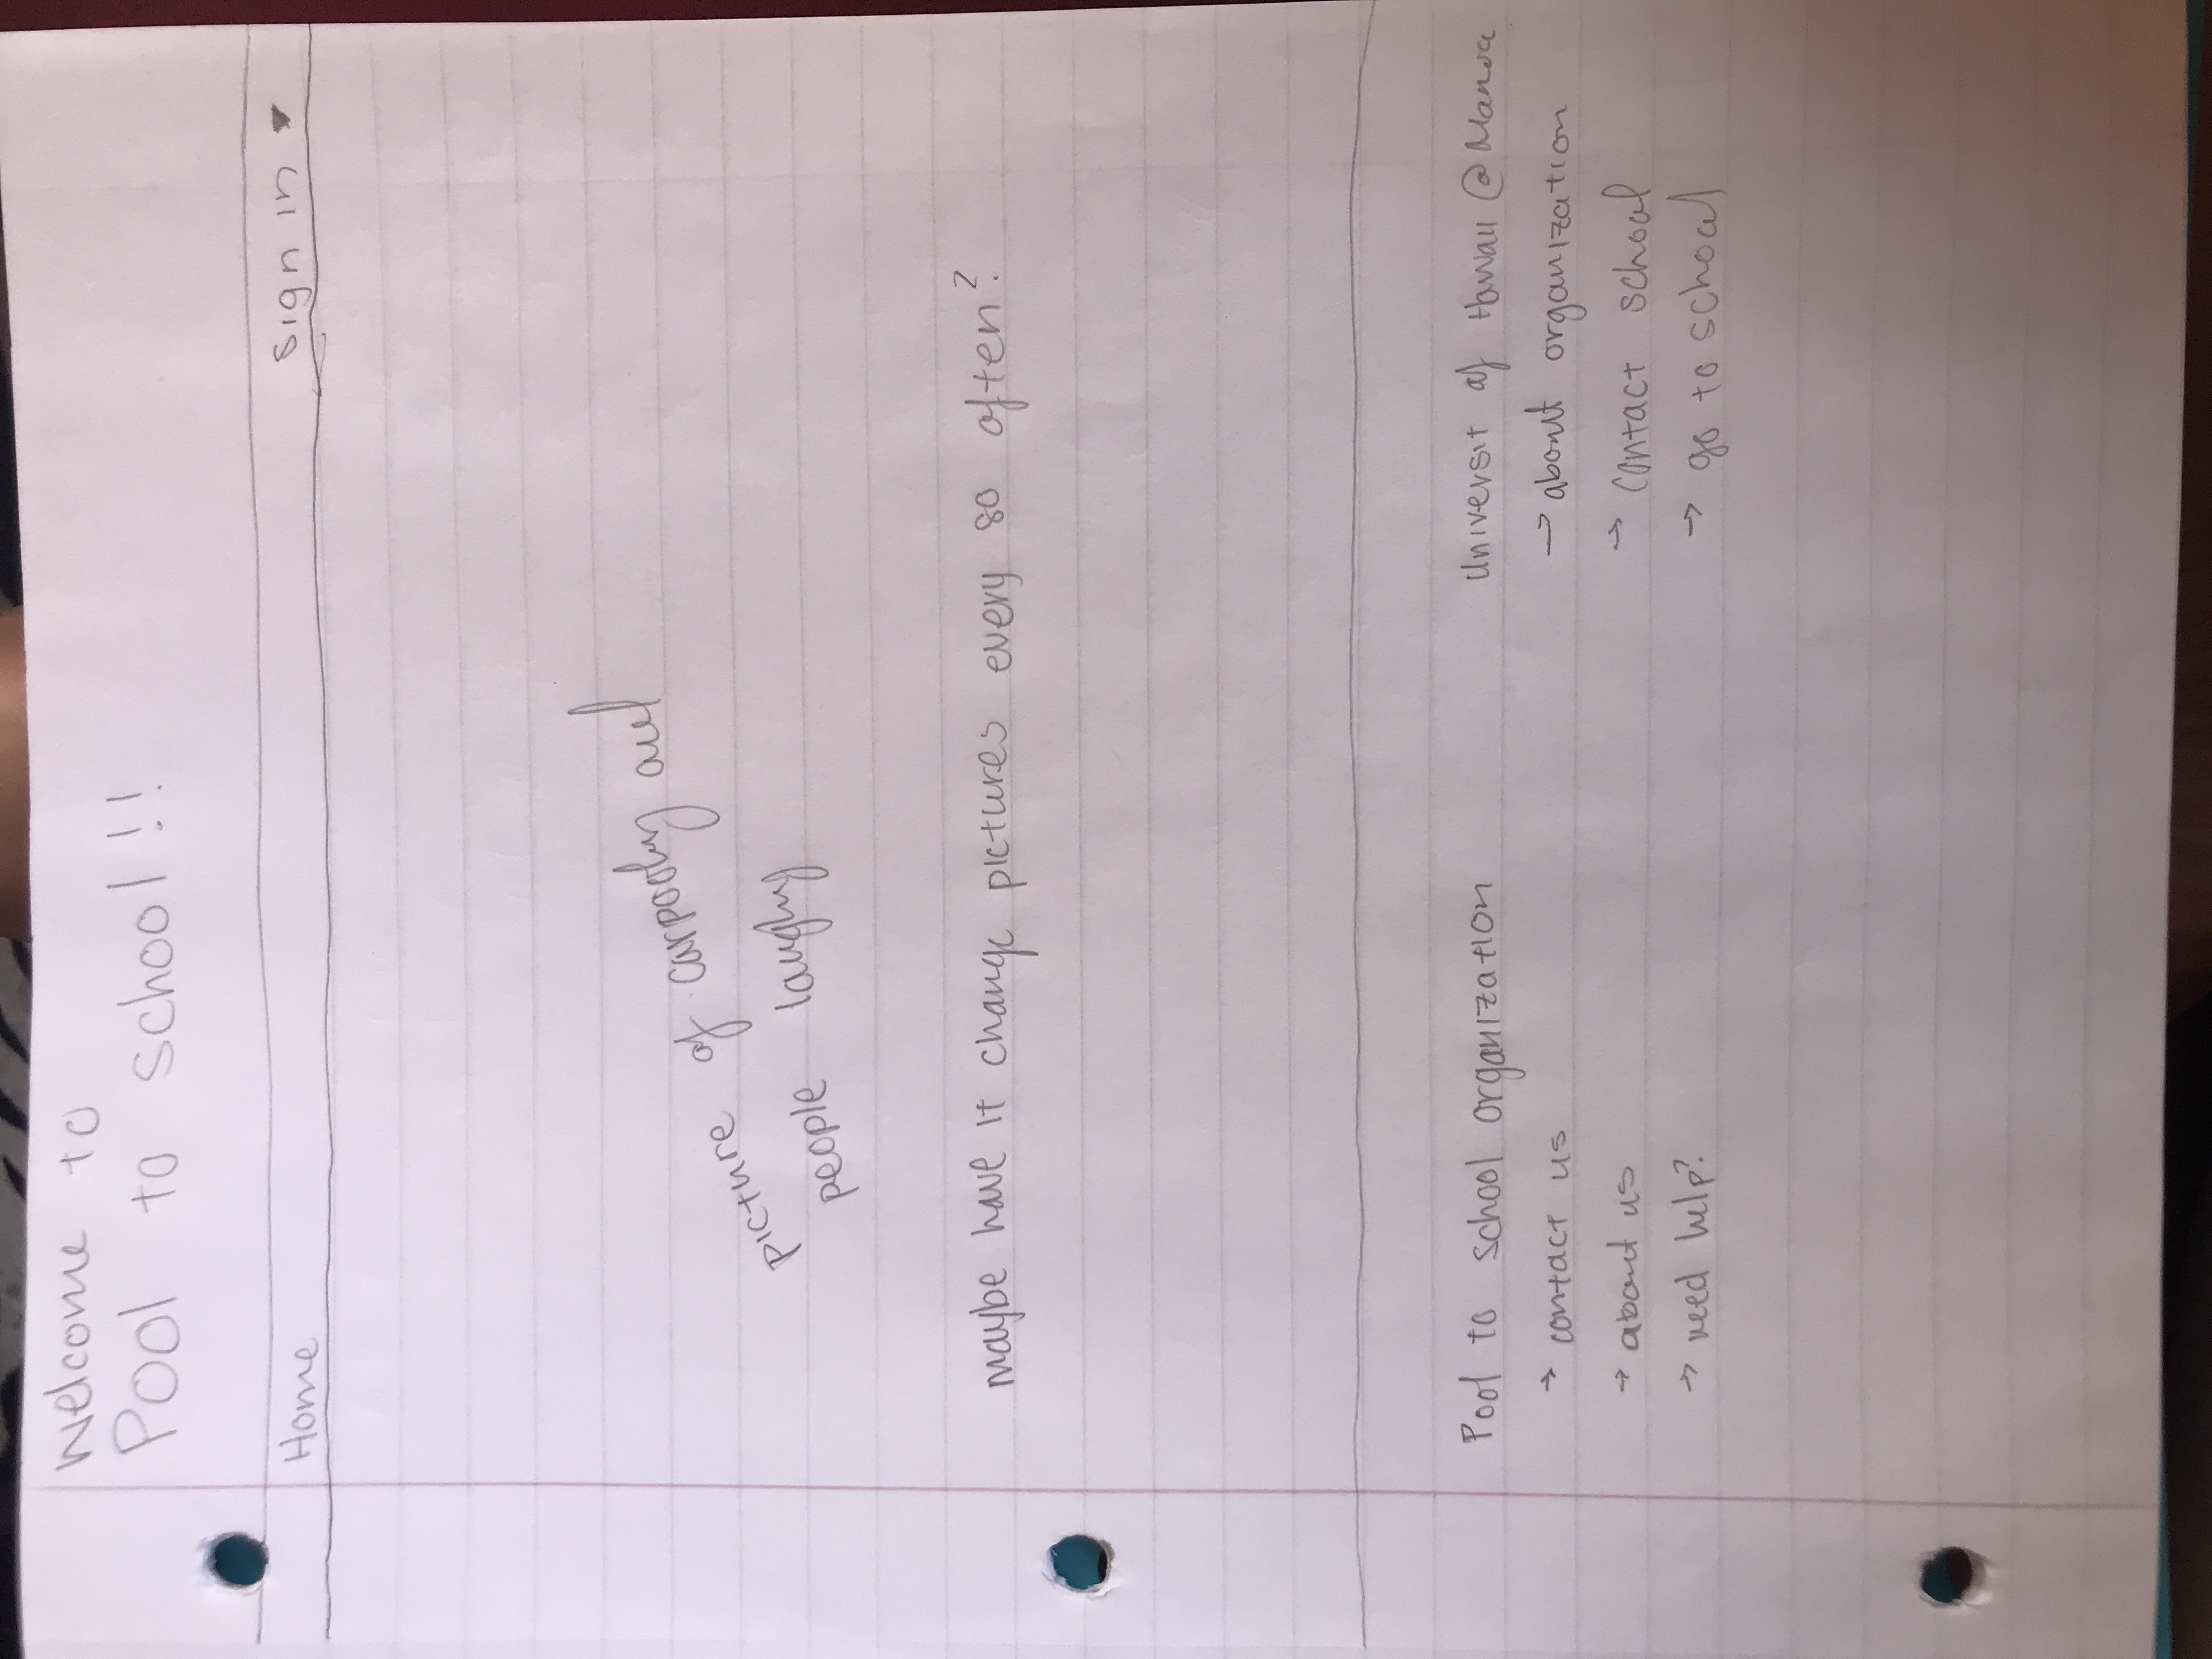 Welcome to
Pool to school!!
Home
Sign in ▼
picture of carpooling and
people laughing
maybe have it change pictures every so often?
Pool to school organization
→ contact us
→ about us
→ need help?
Universit of Hawaii @ Manoa
→ about organization
→ contact school
→ go to school